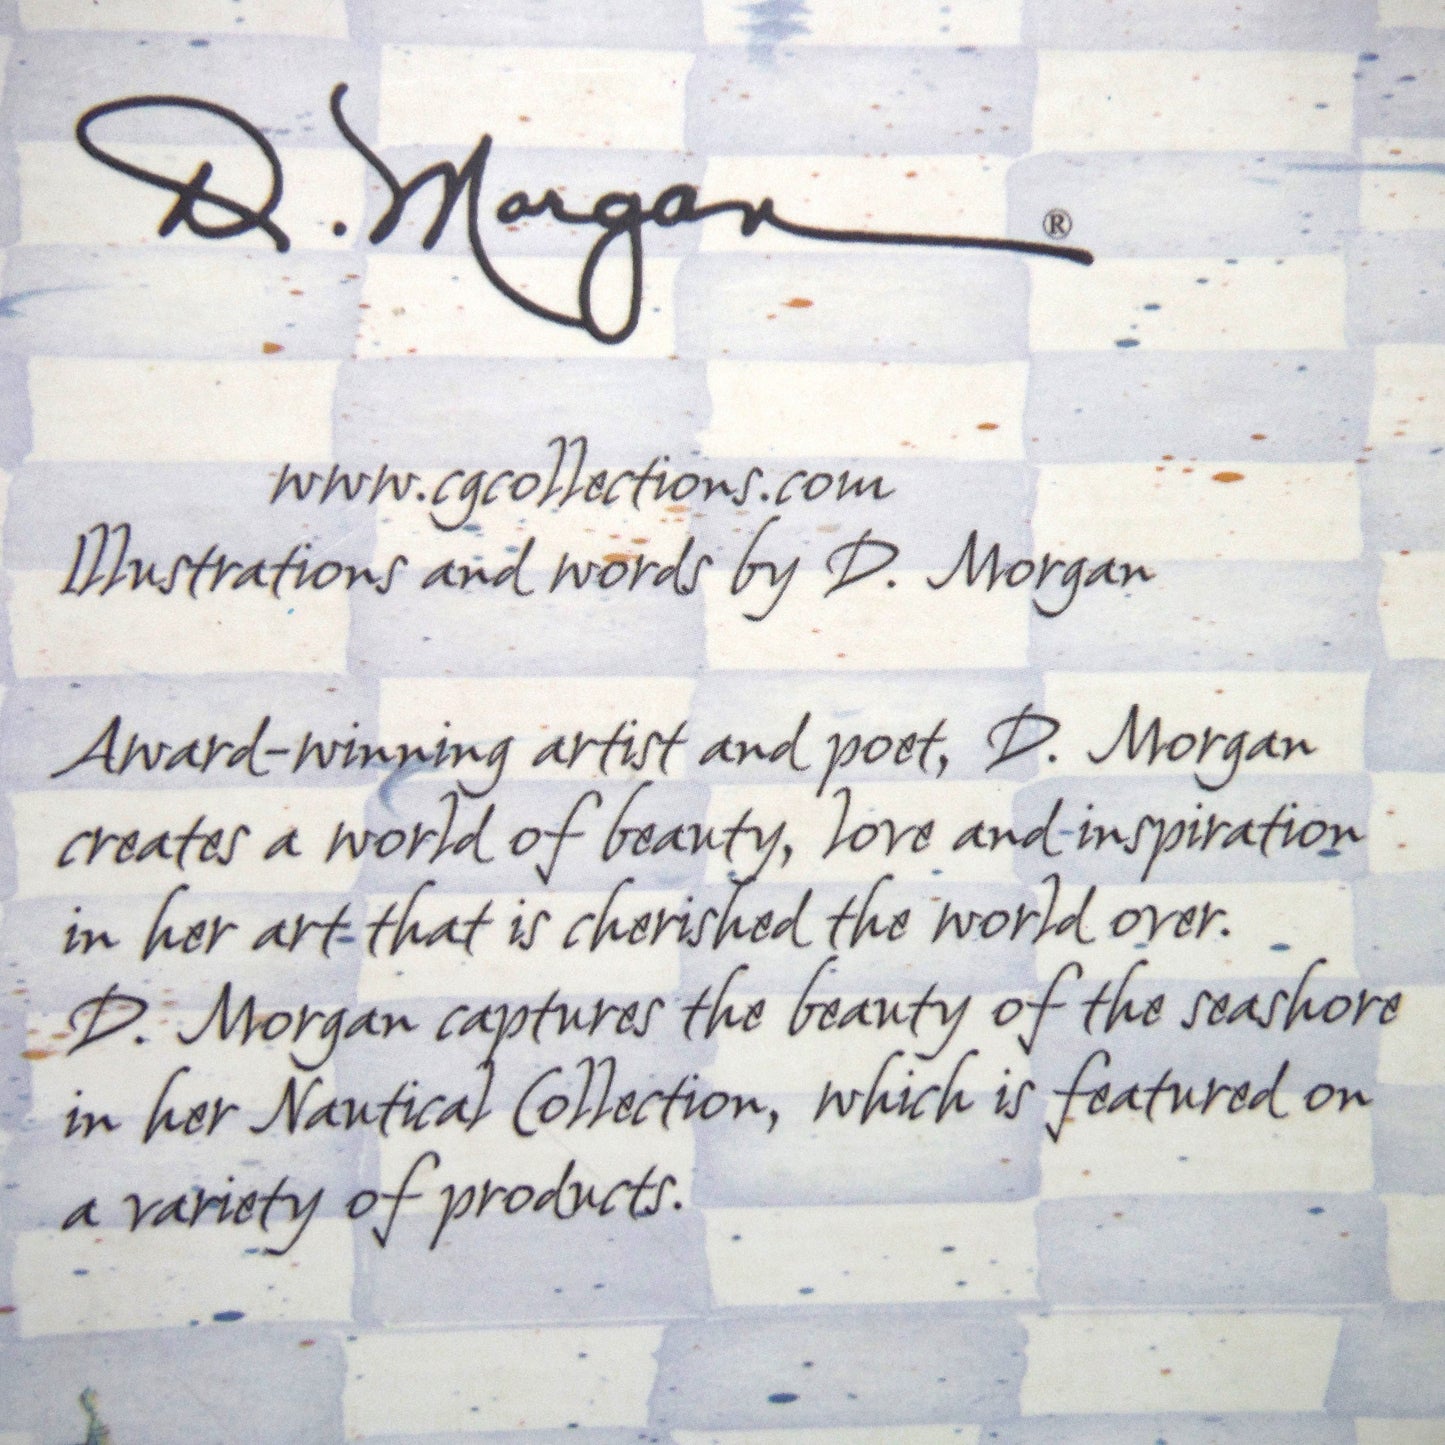 D. Morgan ®
www.cgcollections.com
Illustrations and words by D. Morgan
Award-winning artist and poet, D. Morgan
creates a world of beauty, love and inspiration
in her art that is cherished the world over.
D. Morgan captures the beauty of the seashore
in her Nautical Collection, which is featured on
a variety of products.